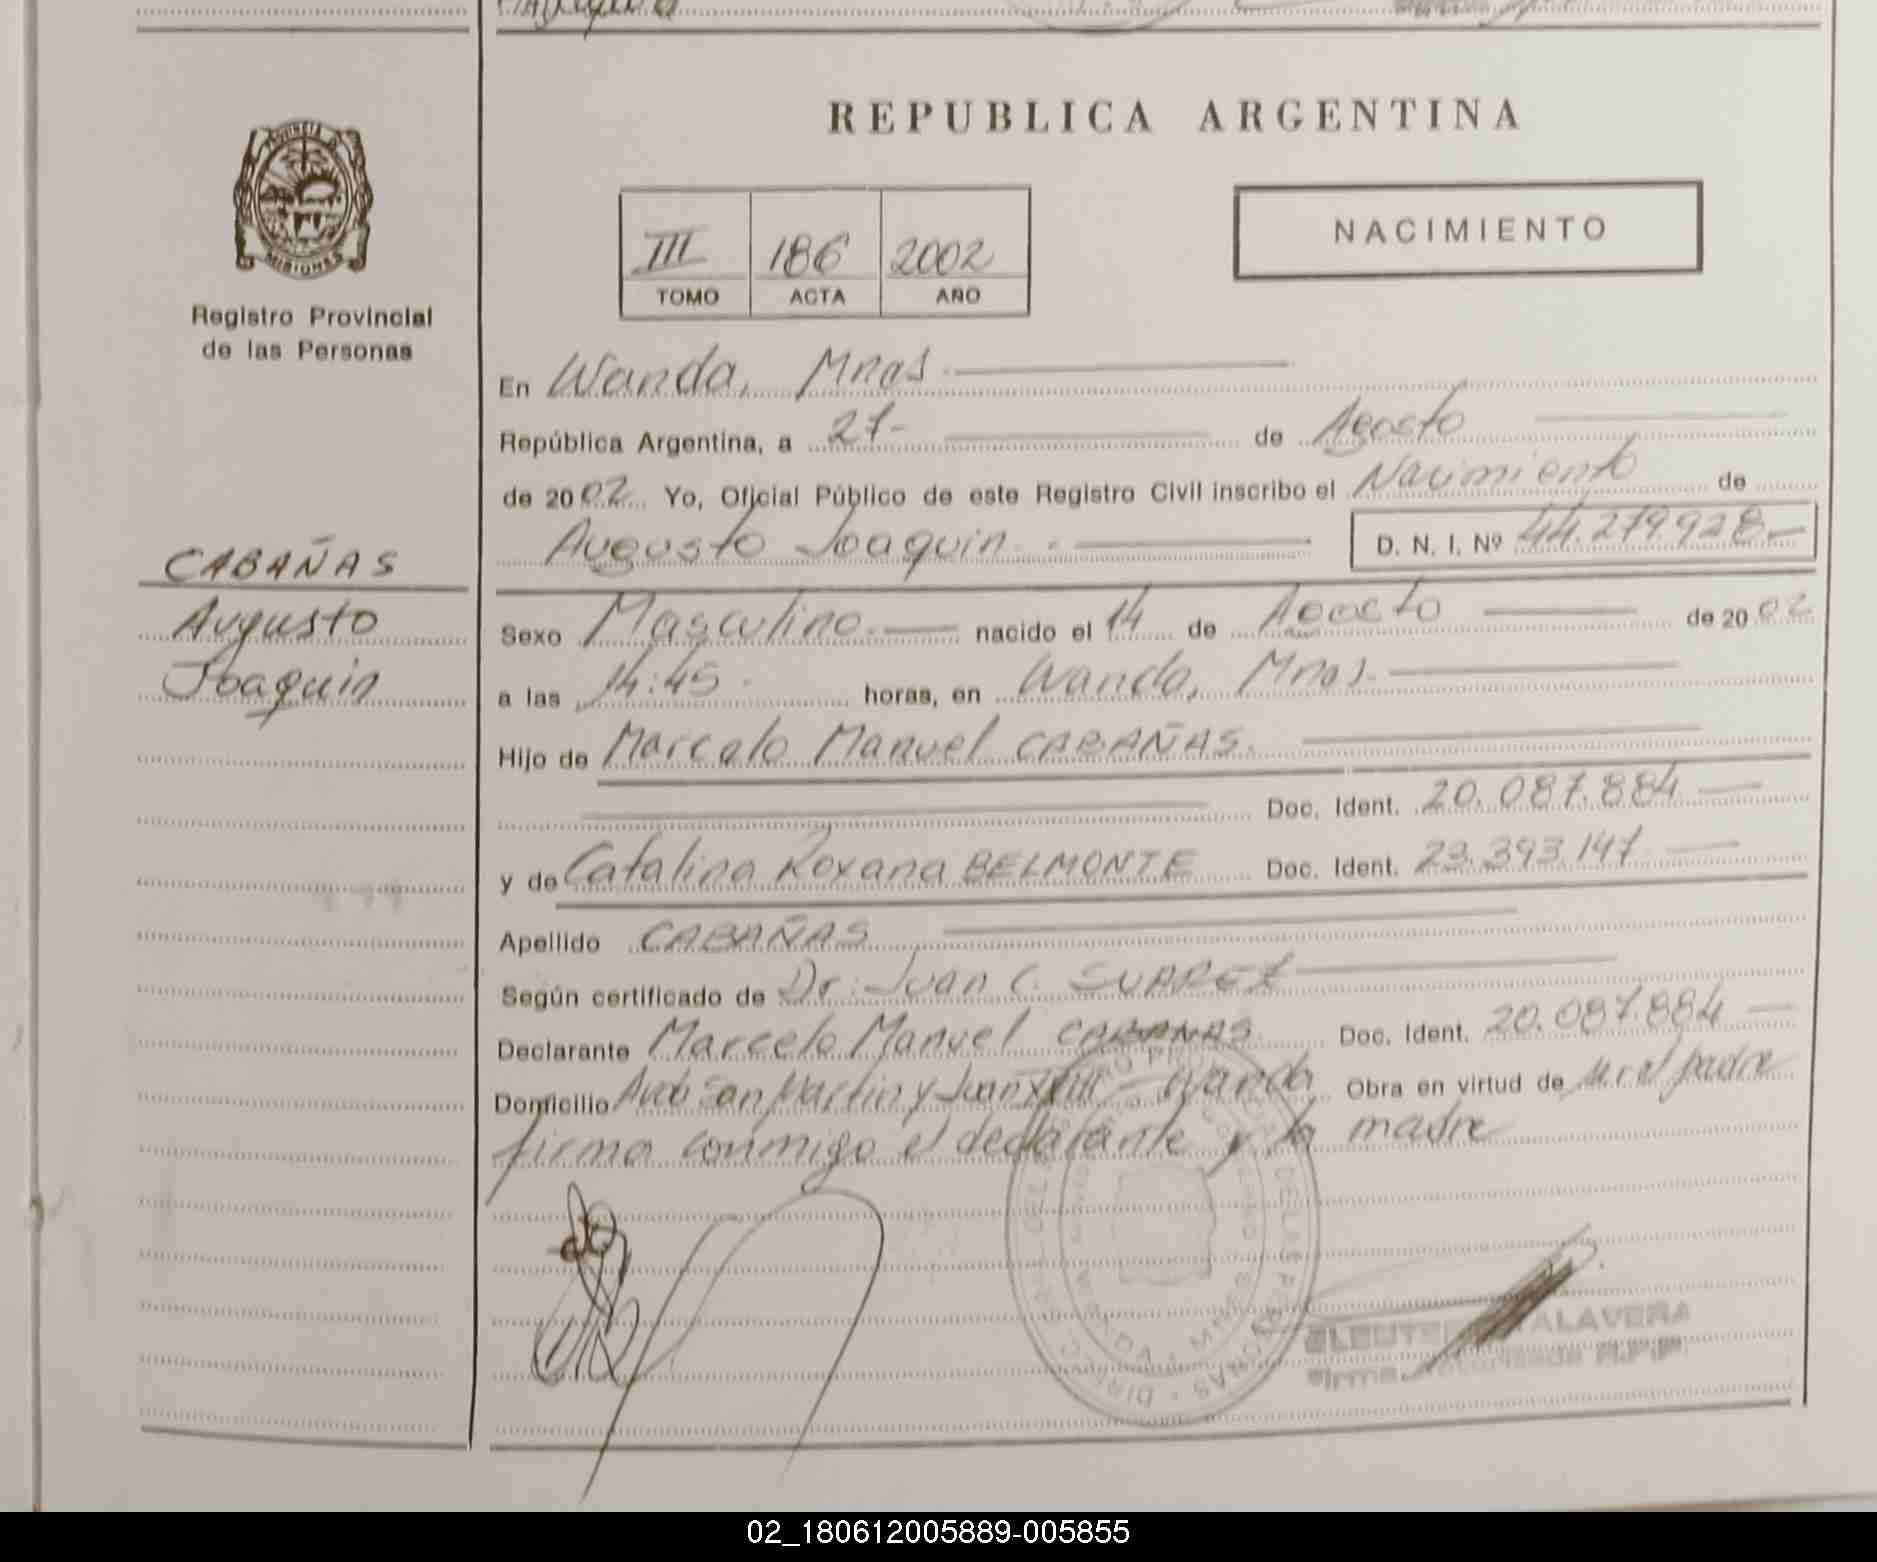 REPUBLICA ARGENTINA
PROVINCIA
MISIONES
Registro Provincial
de las Personas
III 186 2002
TOMO ACTA AÑO
NACIMIENTO
En Wanda, Mnes
República Argentina, a 27 de Agosto
de 2002 Yo, Oficial Público de este Registro Civil inscribo el Nacimiento de
Augusto Joaquin D. N. I. Nº 44.279.928
CABAÑAS
Augusto
Joaquin
Sexo Masculino nacido el 14 de Agosto de 2002
a las 14:45 horas, en Wanda, Mnes
Hijo de Marcelo Manuel CABAÑAS
Doc. Ident. 20.087.884
y de Catalina Roxana BELMONTE Doc. Ident. 23.393.147
Apellido CABAÑAS
Según certificado de Dr. Juan C. SUAREZ
Declarante Marcelo Manuel CABAÑAS Doc. Ident. 20.087.884
Domicilio Avda San Martin y Juan XXIII - Wanda Obra en virtud de ser el padre
firma conmigo el declarante y la madre
ALAVERA
Firma R.P.P.
02_180612005889-005855